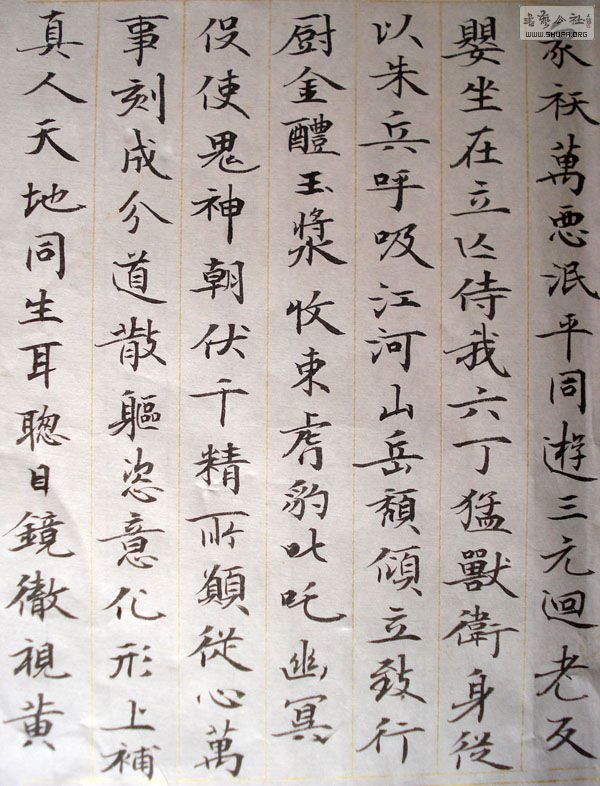 家祅萬惡泯平同遊三元迴老反
嬰坐在立亾侍我六丁猛獸衛身従
以朱兵呼吸江河山岳頹傾立致行
厨金醴玉漿收束虎豹叱吒幽冥
役使鬼神朝伏千精所願従心萬
事刻成分道散軀恣意化形上補
真人天地同生耳聰目鏡徹視黄
書藝公社
WWW.SHUFA.ORG